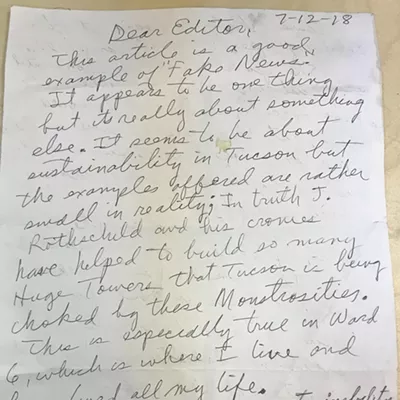 Dear Editor, 7-12-18
This article is a good
example of "Fake News."
It appears to be one thing
but its really about something
else. It seems to be about
sustainability in Tucson but
the examples offered are rather
small in reality. In truth J.
Rothschild and his cronies
have helped to build so many
Huge Towers that Tucson is being
choked by these Monstrosities.
This is especially true in Ward
6, which is where I live and
all my life.